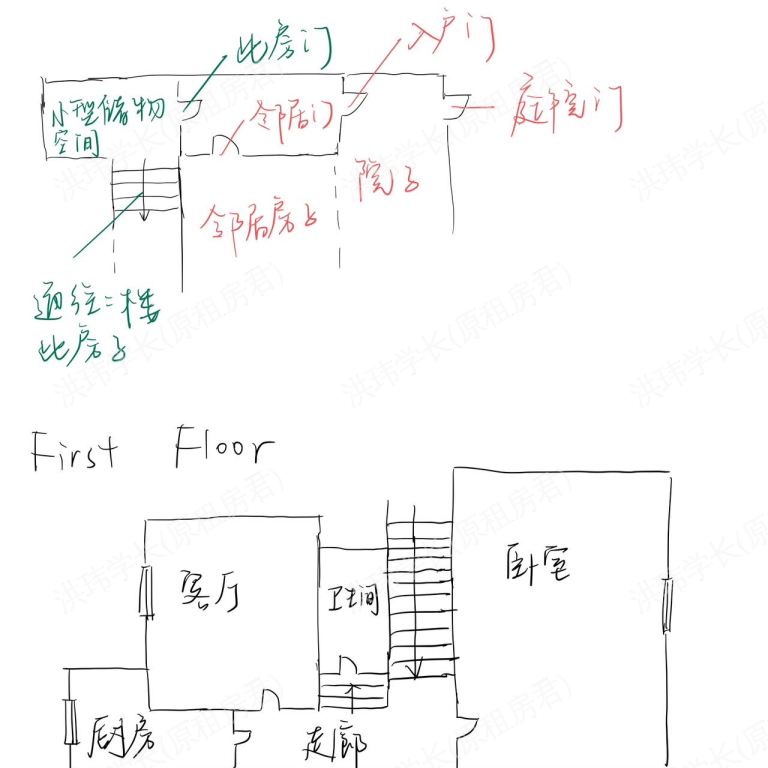 此房门
入户门
小型储物
空间
邻居门
庭院门
院子
邻居房子
通往二楼
此房子
First Floor
客厅
卫生间
卧室
厨房
走廊
洪玮学长(原租房君)